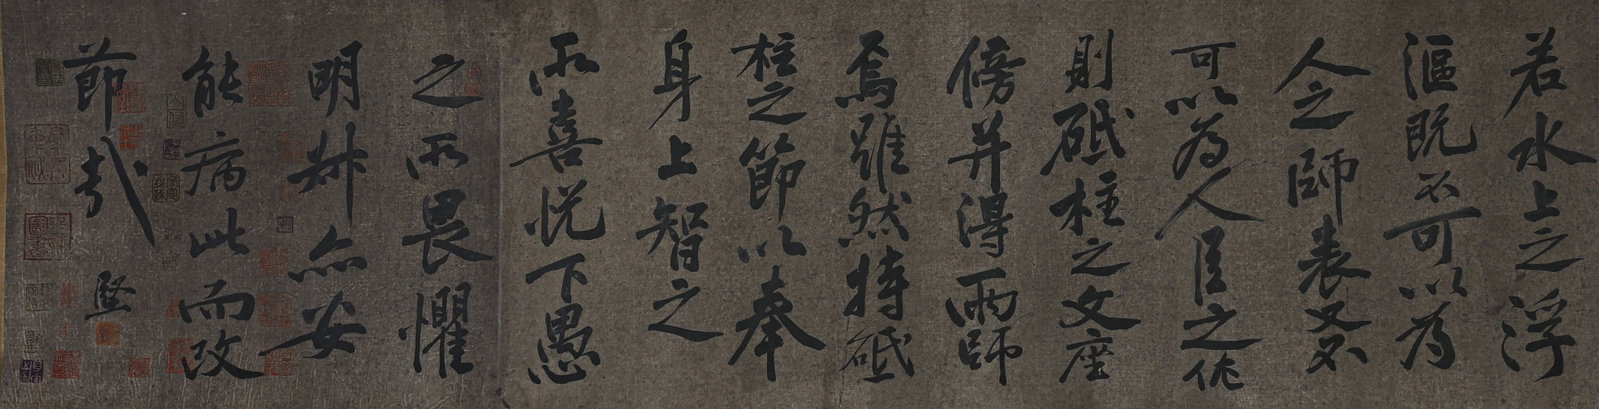 若水上之浮
漚既不可以為
人之師表又不
可以為人臣之作
則砥柱之文座
傍并得兩師
焉雖然持砥
柱之節以奉
身上智之
所喜悅下愚
之所畏懼
明叔亦安
能病此而改
節哉 堅